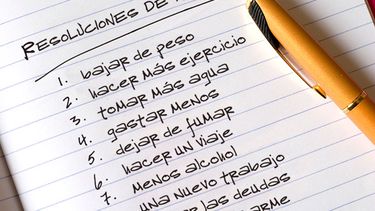 RESOLUCIONES DE
1. bajar de peso
2. hacer más ejercicio
3. tomar más agua
4. gastar menos
5. dejar de fumar
6. hacer un viaje
7. menos alcohol
una nuevo trabajo
las deudas